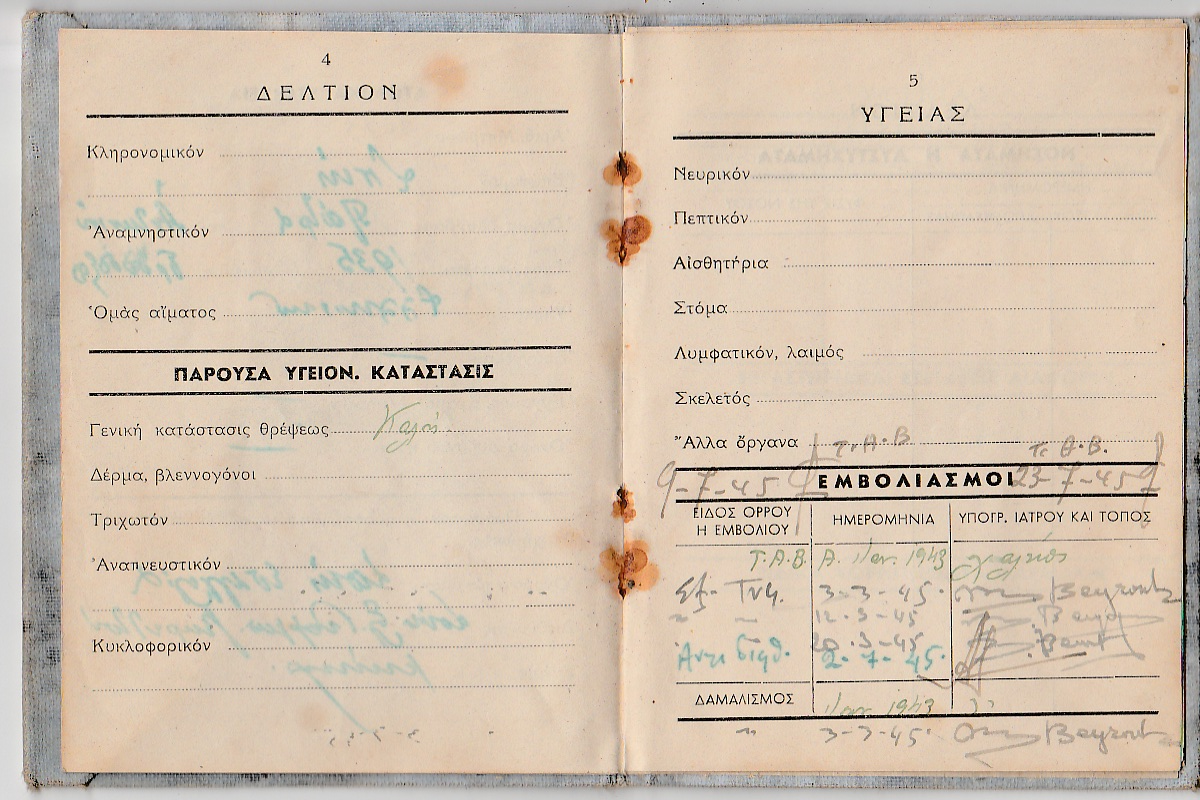 4
ΔΕΛΤΙΟΝ
Κληρονομικόν
Ἀναμνηστικόν
Ὁμὰς αἵματος
ΠΑΡΟΥΣΑ ΥΓΕΙΟΝ. ΚΑΤΑΣΤΑΣΙΣ
Γενικὴ κατάστασις θρέψεως Καλή
Δέρμα, βλεννογόνοι
Τριχωτόν
Ἀναπνευστικόν
Κυκλοφορικόν
5
ΥΓΕΙΑΣ
Νευρικόν
Πεπτικόν
Αἰσθητήρια
Στόμα
Λυμφατικόν, λαιμός
Σκελετός
Ἄλλα ὄργανα T.A.B T.A.B.
9-7-45 ΕΜΒΟΛΙΑΣΜΟΙ 23-7-45
ΕΙΔΟΣ ΟΡΡΟΥ Η ΕΜΒΟΛΙΟΥ ΗΜΕΡΟΜΗΝΙΑ ΥΠΟΓΡ. ΙΑΤΡΟΥ ΚΑΙ ΤΟΠΟΣ
T.A.B. 1943
3-3-45. Beyrouth
" " 12-3-45
" 20-3-45
2-7-45.
ΔΑΜΑΛΙΣΜΟΣ 1943
" 3-3-45 Beyrouth